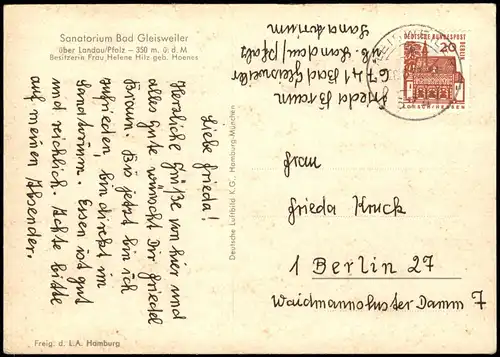 Sanatorium Bad Gleisweiler
über Landau/Pfalz — 350 m. ü. d. M
Besitzerin Frau Helene Hilz geb. Hoenes
Liebe Frieda!
Herzliche Grüße von hier und
alles Gute wünscht Dir Friedel
Braun. Bis jetzt bin ich
zufrieden, bin direkt im
Sanatorium. Essen ist gut
und reichlich. Achte bitte
auf meinen Absender.
Freig. d. L.A. Hamburg
Deutsche Luftbild K.G., Hamburg-München
Frieda Braun
6741 Bad Gleisweiler
üb. Landau/Pfalz
Sanatorium
DEUTSCHE BUNDESPOST
BERLIN
20
LORSCH/HESSEN
Frau
Frieda Kruck
1 Berlin 27
Waidmannsluster Damm 7